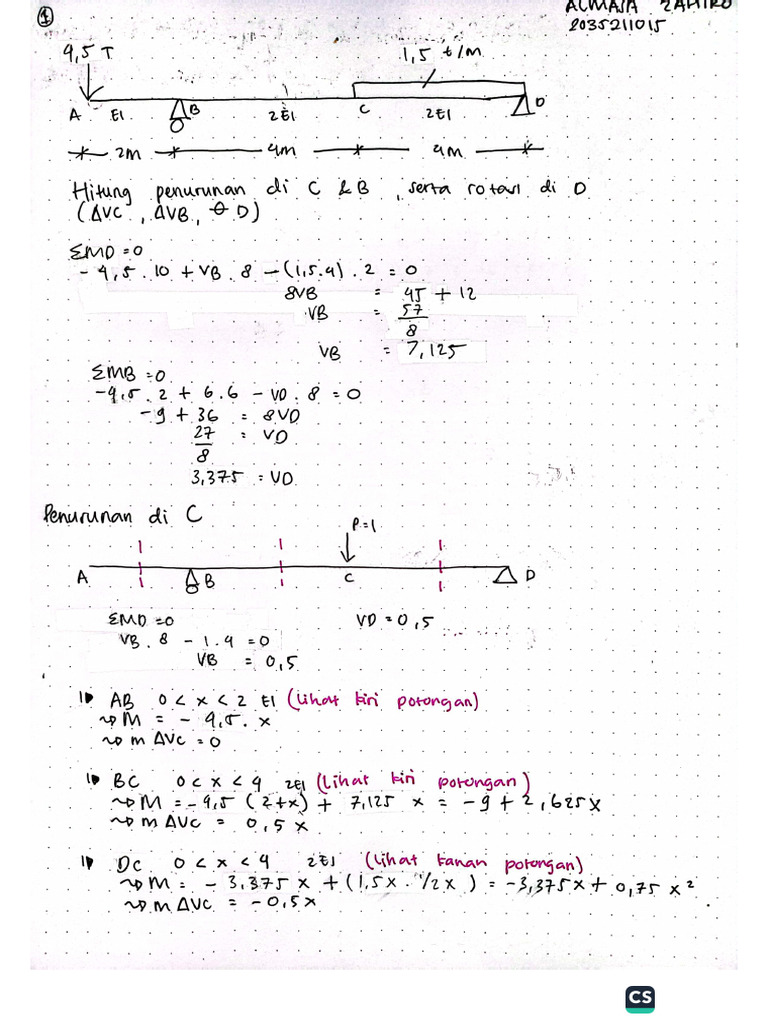 1
ALMAJA ZAHIRO
2035211015
4,5 T
1,5 t/m
A EI B 2EI C 2EI D
2m 4m 4m
Hitung penurunan di C & B, serta rotasi di D
(ΔVC, ΔVB, θ D)
ΣMD = 0
- 4,5 . 10 + VB . 8 - (1,5.4) . 2 = 0
8VB = 45 + 12
VB = 57/8
VB = 7,125
ΣMB = 0
-4,5 . 2 + 6.6 - VD . 8 = 0
-9 + 36 = 8VD
27/8 = VD
3,375 = VD
Penurunan di C
P=1
A B C D
ΣMD = 0 VD = 0,5
VB . 8 - 1.4 = 0
VB = 0,5
AB 0 < x < 2 EI (Lihat kiri potongan)
M = - 4,5 . x
m ΔVC = 0
BC 0 < x < 4 2EI (Lihat kiri potongan)
M = -4,5 (2+x) + 7,125 x = -9 + 2,625x
m ΔVC = 0,5 x
DC 0 < x < 4 2EI (Lihat kanan potongan)
M = - 3,375x + (1,5x . 1/2x) = -3,375x + 0,75 x²
m ΔVC = -0,5x
CS